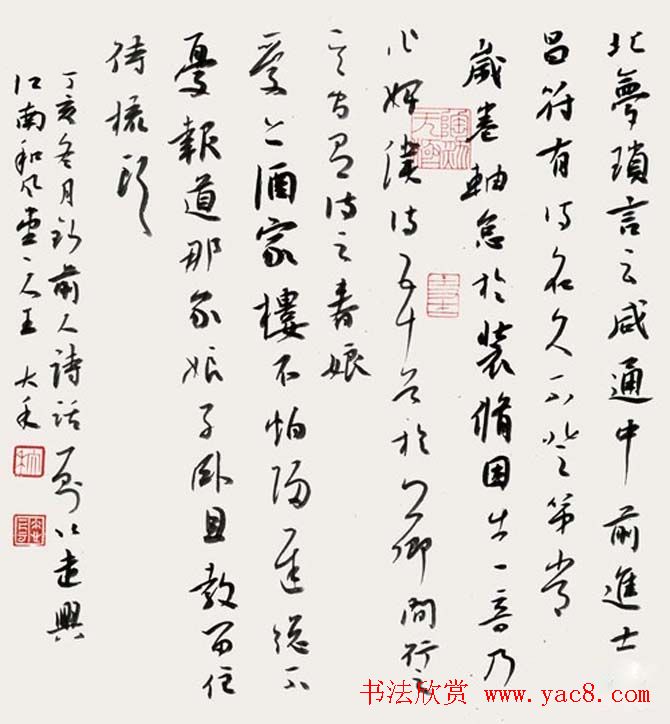 北夢瑣言云咸通中前進士
昌符有詩名久不登第常
歲卷軸怠於裝脩因出一奇乃
作婢僕詩五十首於公卿間行之
有詩云春娘
愛上酒家樓不怕歸遲總不
憂報道那家娘子臥且教留住
待梳頭
丁亥冬月錄前人詩話一則以遣興
江南和風堂主人王大禾
书法欣赏 www.yac8.com